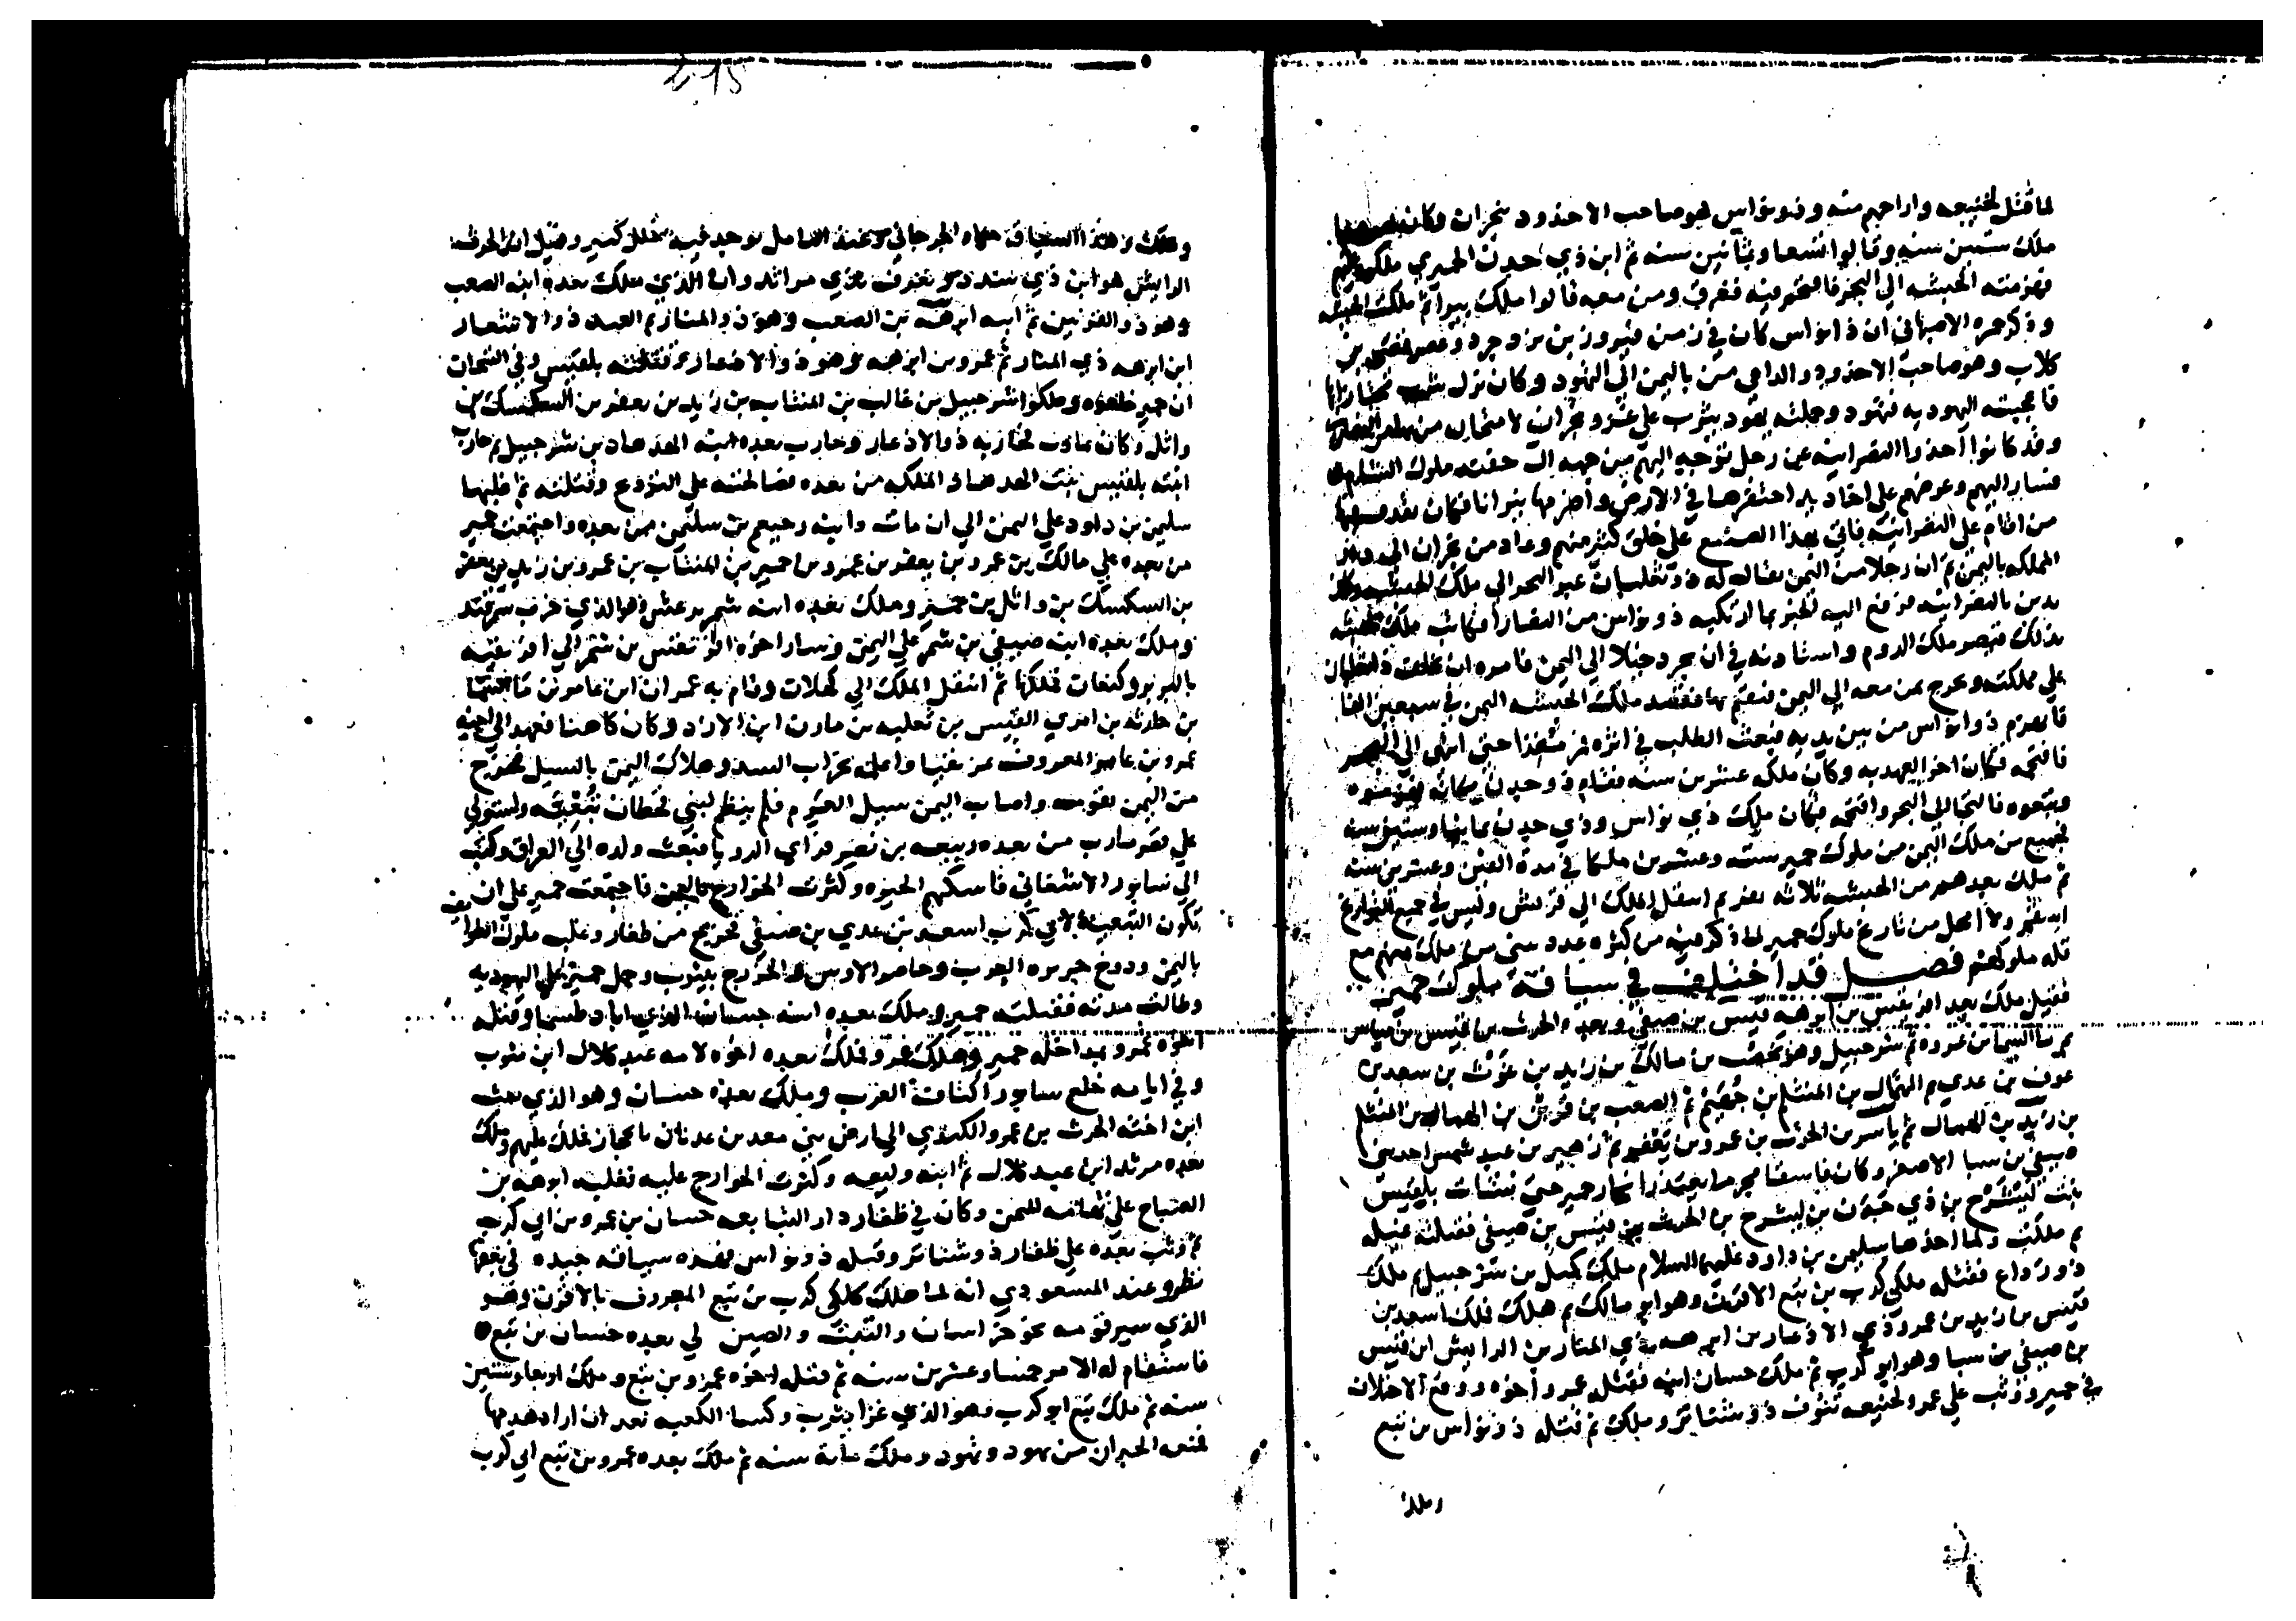 لما قتل لخنيعه واراحهم منه وذو نواس هو صاحب الاخدود بنجران وكان
ملك ستين سنه وقالوا تسعا وثمانين سنه ثم ابن ذي جدن الحميري ملك
فهزمته الحبشه الي البحر فاقتحم فيه فغرق ومن معه قالوا ملك يسيرا ثم ملك الحبشه
وذكر حمزه الاصبهاني ان ذا نواس كان في زمن فيروز بن يزدجرد وعصر قصي بن
كلاب وهو صاحب الاخدود والداعي من باليمن الي اليهود وكان نزل يثرب مجتازا بها
فاعجبته اليهوديه فتهود وحملته يهود يثرب علي غزو نجران لامتحان من بها من النصاري
وقد كانوا اخذوا النصرانيه عن رجل توجه اليهم من جهه ال جفنه ملوك الشام
فسار اليهم وعرضهم علي اخاديد احتفرها في الارض واضرمها نيرانا فكان يقدم
من اقام علي النصرانيه فاتي بهذا الصنيع علي خلق كثير منهم وعاد من نجران الي دار
المملكه باليمن ثم ان رجلا من اليمن يقال له ذو ثعلبان عبر البحر الي ملك الحبشه وكان
يدين بالنصرانيه فرفع اليه الخبر بما ارتكبه ذو نواس من النصارا فكاتب ملك الحبشه
بذلك قيصر ملك الروم واستاذنه في ان يجرد خيلا الي اليمن فامره ان يخلف ذا ثعلبان
علي مملكته ويخرج بمن معه الي اليمن فيقيم بها فقصد ملك الحبشه اليمن في سبعين الفا
فانهزم ذو نواس من بين يديه فبعث الطلب في اثره فمر منفذا حتي انتهي الي البحر
فاقتحمه فكان اخر العهد به وكان ملكه عشرين سنه فقام ذو جدن مكانه فهزموه
وتبعوه فالتجا الي البحر واقتحمه فكان ملك ذي نواس وذي جدن ثمانيا وستين سنه
فجميع من ملك اليمن من ملوك حمير سته وعشرون ملكا في مده الفين وعشرين سنه
ثم ملك بعدهم من الحبشه ثلاثه نفر ثم انتقل الملك الي قريش وليس في جميع التواريخ
اسقم ولا اخل من تاريخ ملوك حمير لما ذكر فيه من كثره عدد سني من ملك منهم مع
قله ملوكهم فصل قد اختلف في سياقة ملوك حمير
فقيل ملك بعد افريقيس بن ابرهه قيس بن صيفي وبعده الحرث بن قيس بن مياس
ثم ماالسما بن عروه ثم شرحبيل وهو يحصب بن مالك بن زيد بن غوث بن سعد بن
عوف بن عدي ثم الهمال بن المنتلم بن جهيم ثم الصعب بن قرين بن الهمال بن المنتلم
بن زيد بن الهمال ثم ياسر بن الحرث بن عمرو بن يعفر ثم زهير بن عبد شمس احد بني
صيفي بن سبا الاصغر وكان فاسقا مجرما يعتذر ابكار حمير حتي نشات بلقيس
بنت ليشرح بن ذي جدن بن ليشرح بن الحرث بن قيس بن صيفي فقتلته غيله
ثم ملكت ولما اخذها سليمن بن داود عليهما السلام ملك لميل بن شرحبيل ثم ملك
ذو وداع فقتله ملكي كرب بن تبع الاقرن وهو ابو مالك ثم هلك فملك اسعد بن
قيس بن زيد بن عمرو ذي الاذعار بن ابرهه ذي المنار بن الرايش ابن قيس
بن صيفي بن سبا وهو ابو كرب ثم ملك حسان ابنه فقتله عمرو اخوه ووقع الاختلاف
في حمير ووثب علي عمرو لخنيعه ينوف ذو شناتر وملك ثم قتله ذو نواس بن تبع
وملك
وملك وهذا السياق حكاه الجرجاني وعند التامل يوجد فيه خلل كبير وقيل ان الحرث
الرايش هو ابن ذي سدد ويعرف بذي مراثد وان الذي ملك بعده ابنه الصعب
وهو ذو القرنين ثم ابنه ابرهه بن الصعب وهو ذو المنار ثم العبد ذو الاشعار
ابن ابرهه ذي المنار ثم عمرو بن ابرهه وهو ذو الاذعار ثم قتلته بلقيس وفي التيجان
ان حمير خلعوه وملكوا شرحبيل بن غالب بن المنتاب بن زيد بن يعفر بن السكسك بن
وائل وكان بمارب فحاربه ذو الاذعار وحارب بعده ابنه الهدهاد بن شرحبيل ثم حارب
ابنته بلقيس بنت الهدهاد الملكه من بعده فصالحته علي التودع وقتلته ثم غلبها
سليمن بن داود علي اليمن الي ان مات وابنه رحبعم بن سليمن من بعده واجتمعت حمير
من بعده علي مالك بن عمرو بن يعفر بن عمرو بن حمير بن المنتاب بن عمرو بن زيد بن يعفر
بن السكسك بن وائل بن حمير وملك بعده ابنه شمر يرعش وهو الذي خرب سمرقند
وملك بعده ابنه صيفي بن شمر علي اليمن وسار اخوه افريقس بن شمر الي افريقيه
بالبربر وكنعان فملكها ثم انتقل الملك الي كهلان وقام به عمران ابن عامر بن ماالسما
بن حارثه بن امري القيس بن ثعلبه بن مازن ابن الازد وكان كاهنا فعهد الي اخيه
عمرو بن عامر المعروف بمزيقيا واعلمه بخراب السد وهلاك اليمن بالسيل فخرج
من اليمن بقومه واصاب اليمن سيل العرم فلم ينظم لبني قحطان بقيه واستولي
علي قصر مارب من بعده ربيعه بن نصر فراي الرويا فبعث ولده الي العراق وكتب
الي سابور الاشغاني فاسكنهم الحيره وكثرت الخوارج باليمن فاجتمعت حمير علي ان
تكون التبعيه لابي كرب اسعد بن عدي بن صيفي فخرج من ظفار وغلب ملوك الطوايف
باليمن ودوخ جزيره العرب وحاصر الاوس والخزرج بيثرب وحمل حمير علي اليهوديه
وطالت مدته فقتلته حمير وملك بعده ابنه حسان الذي اباد طسما وقتله
اخوه عمرو بمداخله حمير وهلك عمرو فملك بعده اخوه لامه عبد كلال ابن مثوب
وفي ايامه خلع سابور اكتاف العرب وملك بعده حسان وهو الذي بعث
ابن اخته الحرث بن عمرو الكندي الي ارض بني معد بن عدنان بالحجاز فملك عليهم وملك
بعده مرثد ابن عبد كلال ثم ابنه وليعه وكثرت الخوارج عليه فغلبه ابرهه بن
الصباح علي تهامه لليمن وكان في ظفار دار التبابعه حسان بن عمرو بن ابي كرب
ثم وثب بعده علي ظفار ذو شناتر وقتله ذو نواس فهذه سياقه جيده في بعضها
نظر وعند المسعودي انه لما هلك كلكي كرب بن تبع المعروف بالاقرن وهو
الذي سير قومه نحو خراسان والتبت والصين لي بعده حسان بن تبع
فاستقام له الامر خمسا وعشرين سنه ثم قتله اخوه عمرو بن تبع وملك اربعا وستين
سنه ثم ملك تبع ابو كرب وهو الذي غزا يثرب وكسا الكعبه بعد ان اراد هدمها
فمنعه الحبران من يهود وتهود وملك ماية سنه ثم ملك بعده عمرو بن تبع ابي كرب